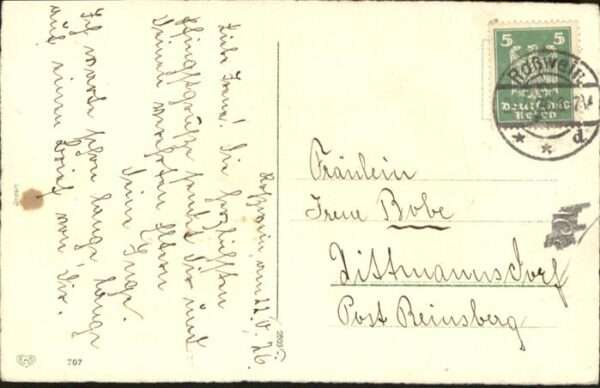 Roßwein, am 22.5.26.
Liebe Irene! Die herzlichsten
Pfingstgrüße sendet Dir und
Deinen werten Eltern
Deine Inge.
Ich warte schon lange, lange
auf einen Brief von Dir.
5 5
Roßwein
Deutsches
Reich
d
Fräulein
Irene Bobe
Dittmannsdorf
Post Reinsberg
707